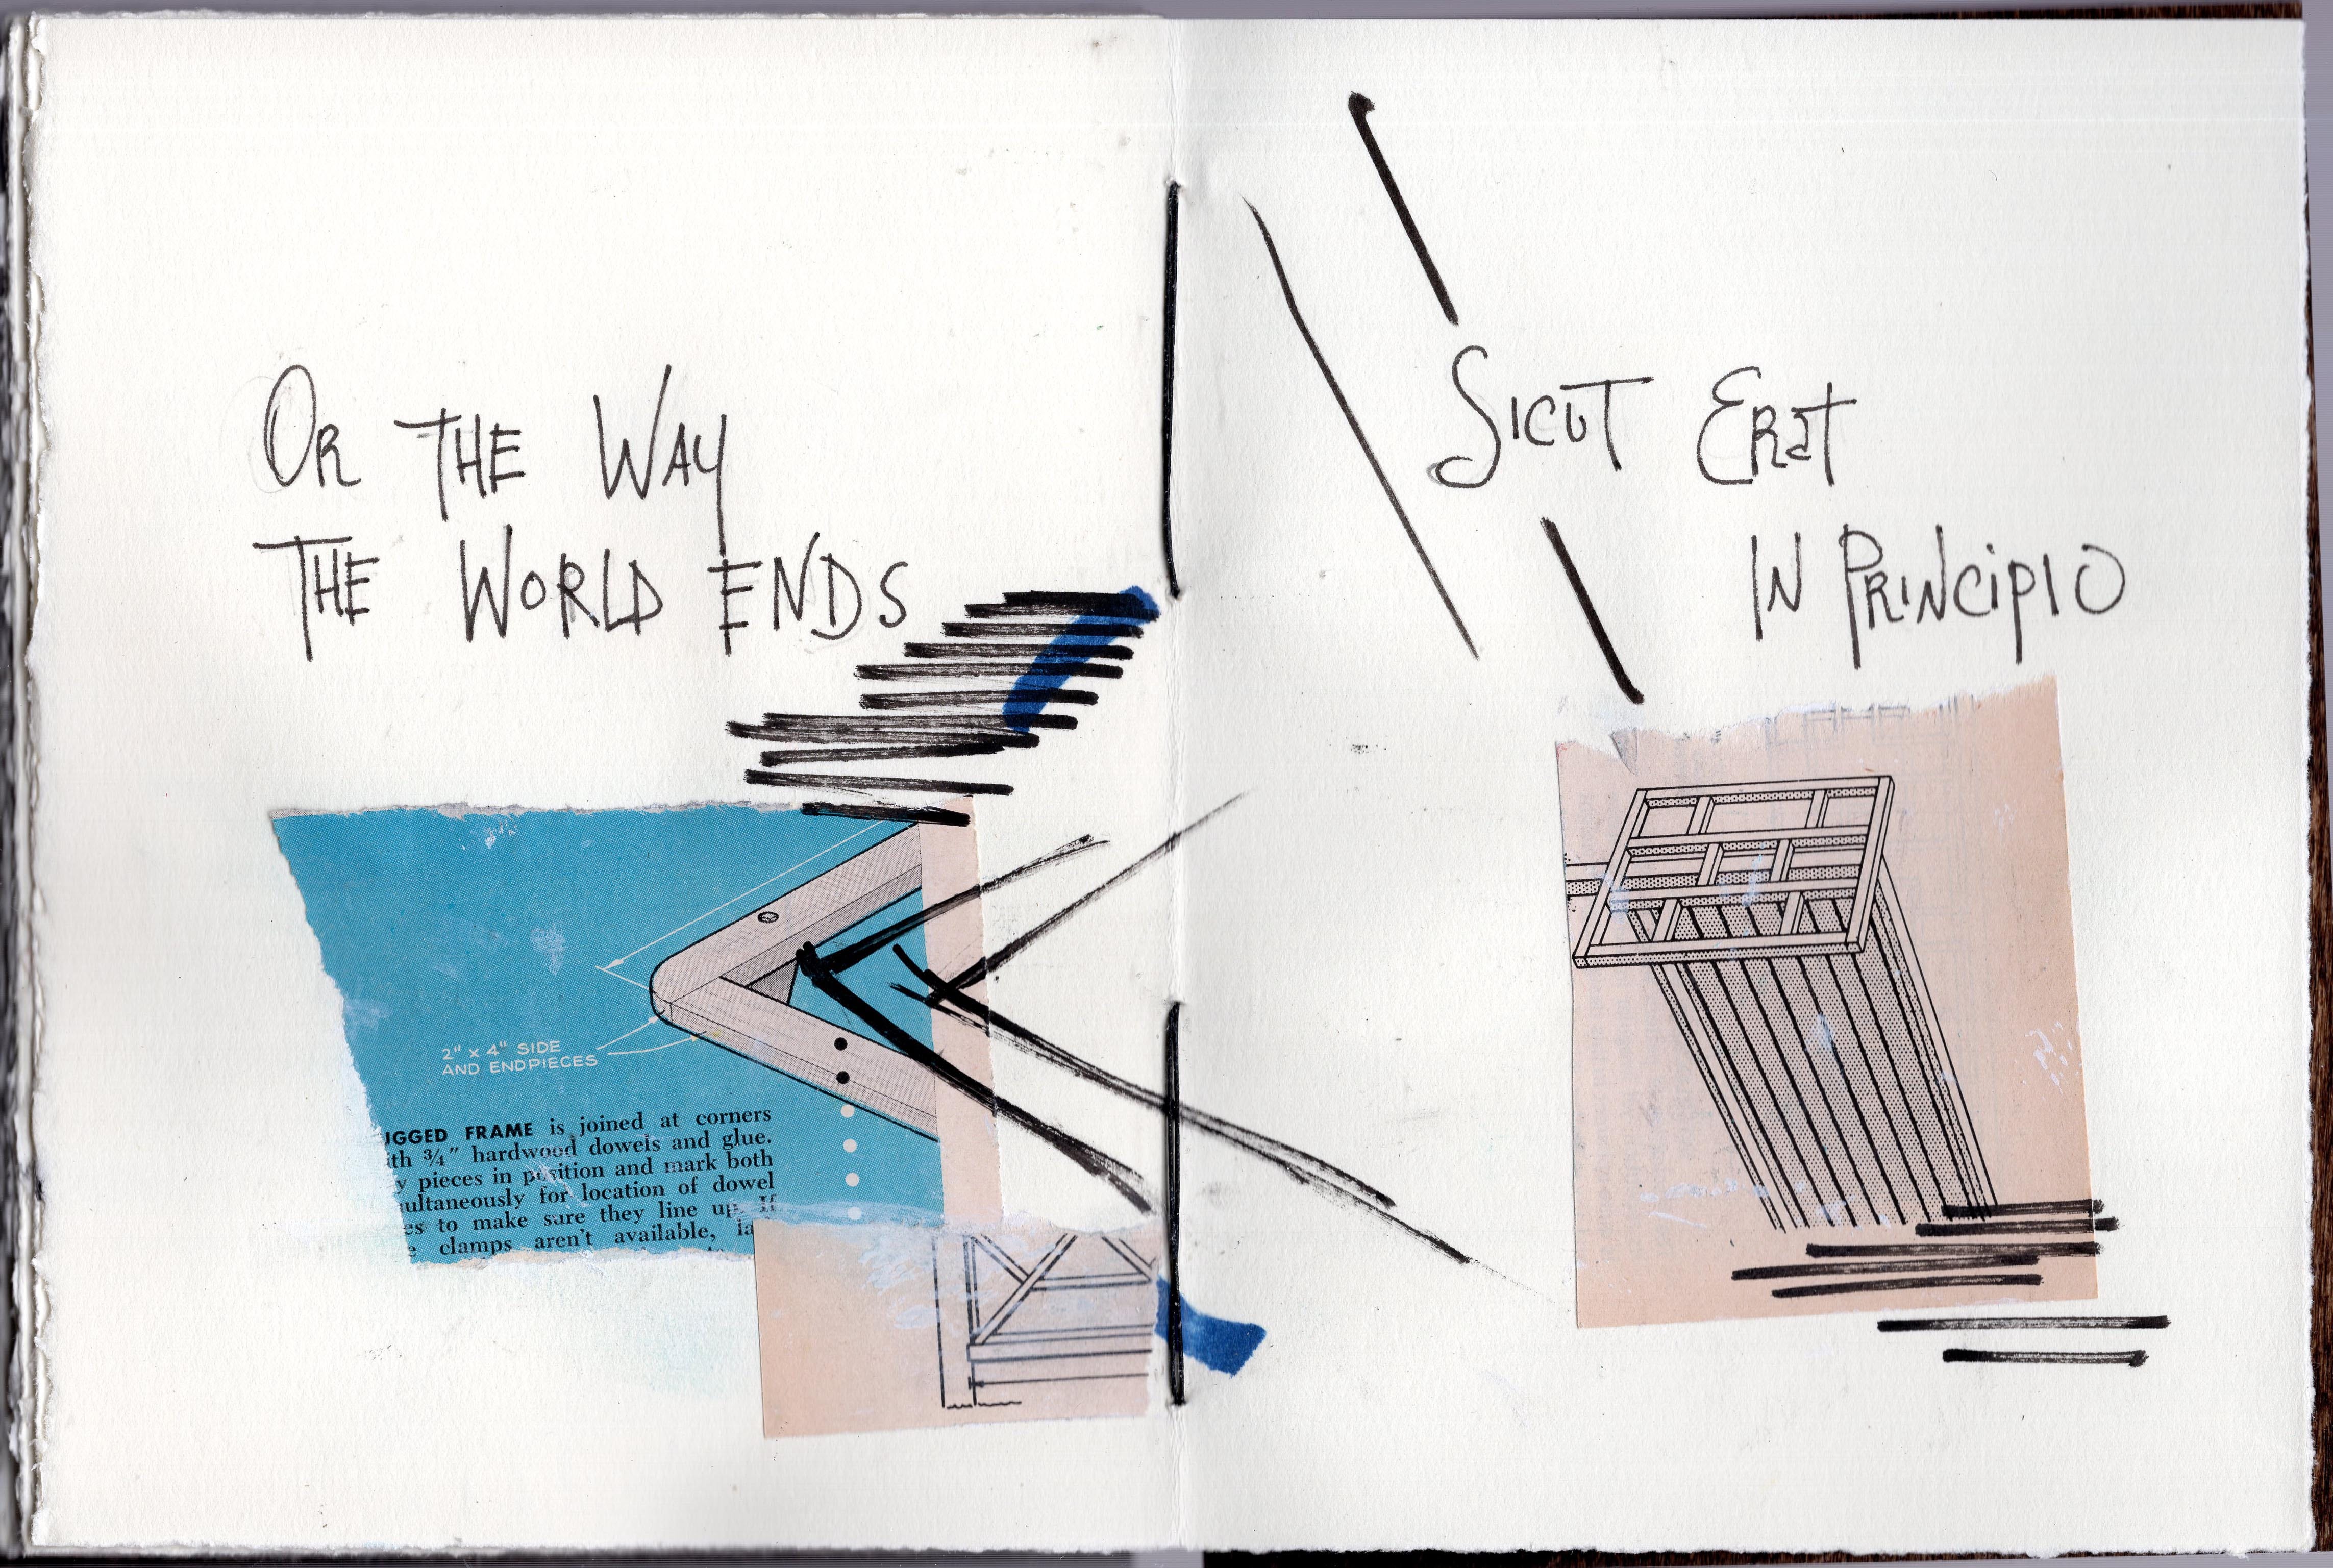 OR THE WAY
THE WORLD ENDS
SICUT ERAT
IN PRINCIPIO
2" x 4" SIDE
AND ENDPIECES
IGGED FRAME is joined at corners
ith ¾" hardwood dowels and glue.
y pieces in position and mark both
ultaneously for location of dowel
es to make sure they line up. If
e clamps aren't available, la